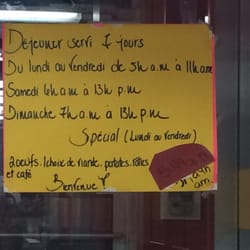 Déjeuner servi 7 jours
Du lundi au vendredi de 5h a.m à 11h am
Samedi 6h a.m à 13h p.m
Dimanche 7h a.m à 13h p.m
Spécial (Lundi au vendredi)
2 oeufs. 1 choix de viande. patates. rôties
et café
Bienvenue
am